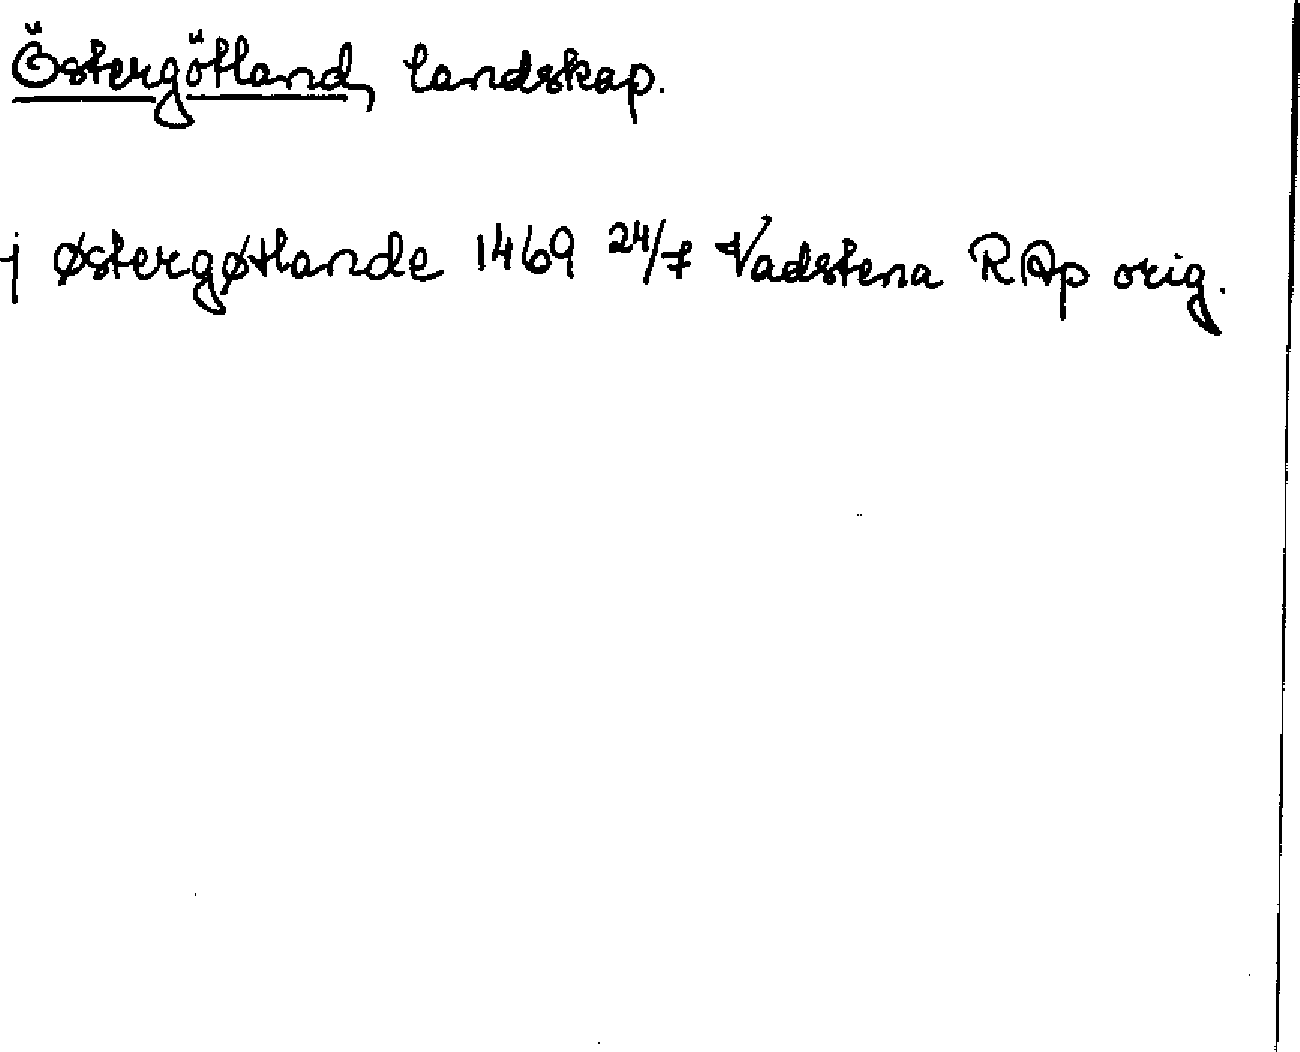 Östergötland, landskap.
j østergøtlande 1469 24/7 Vadstena RAp orig.